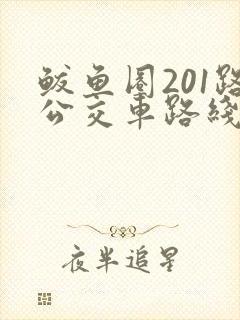 鲅鱼圈201路
公交车路线
夜半追星